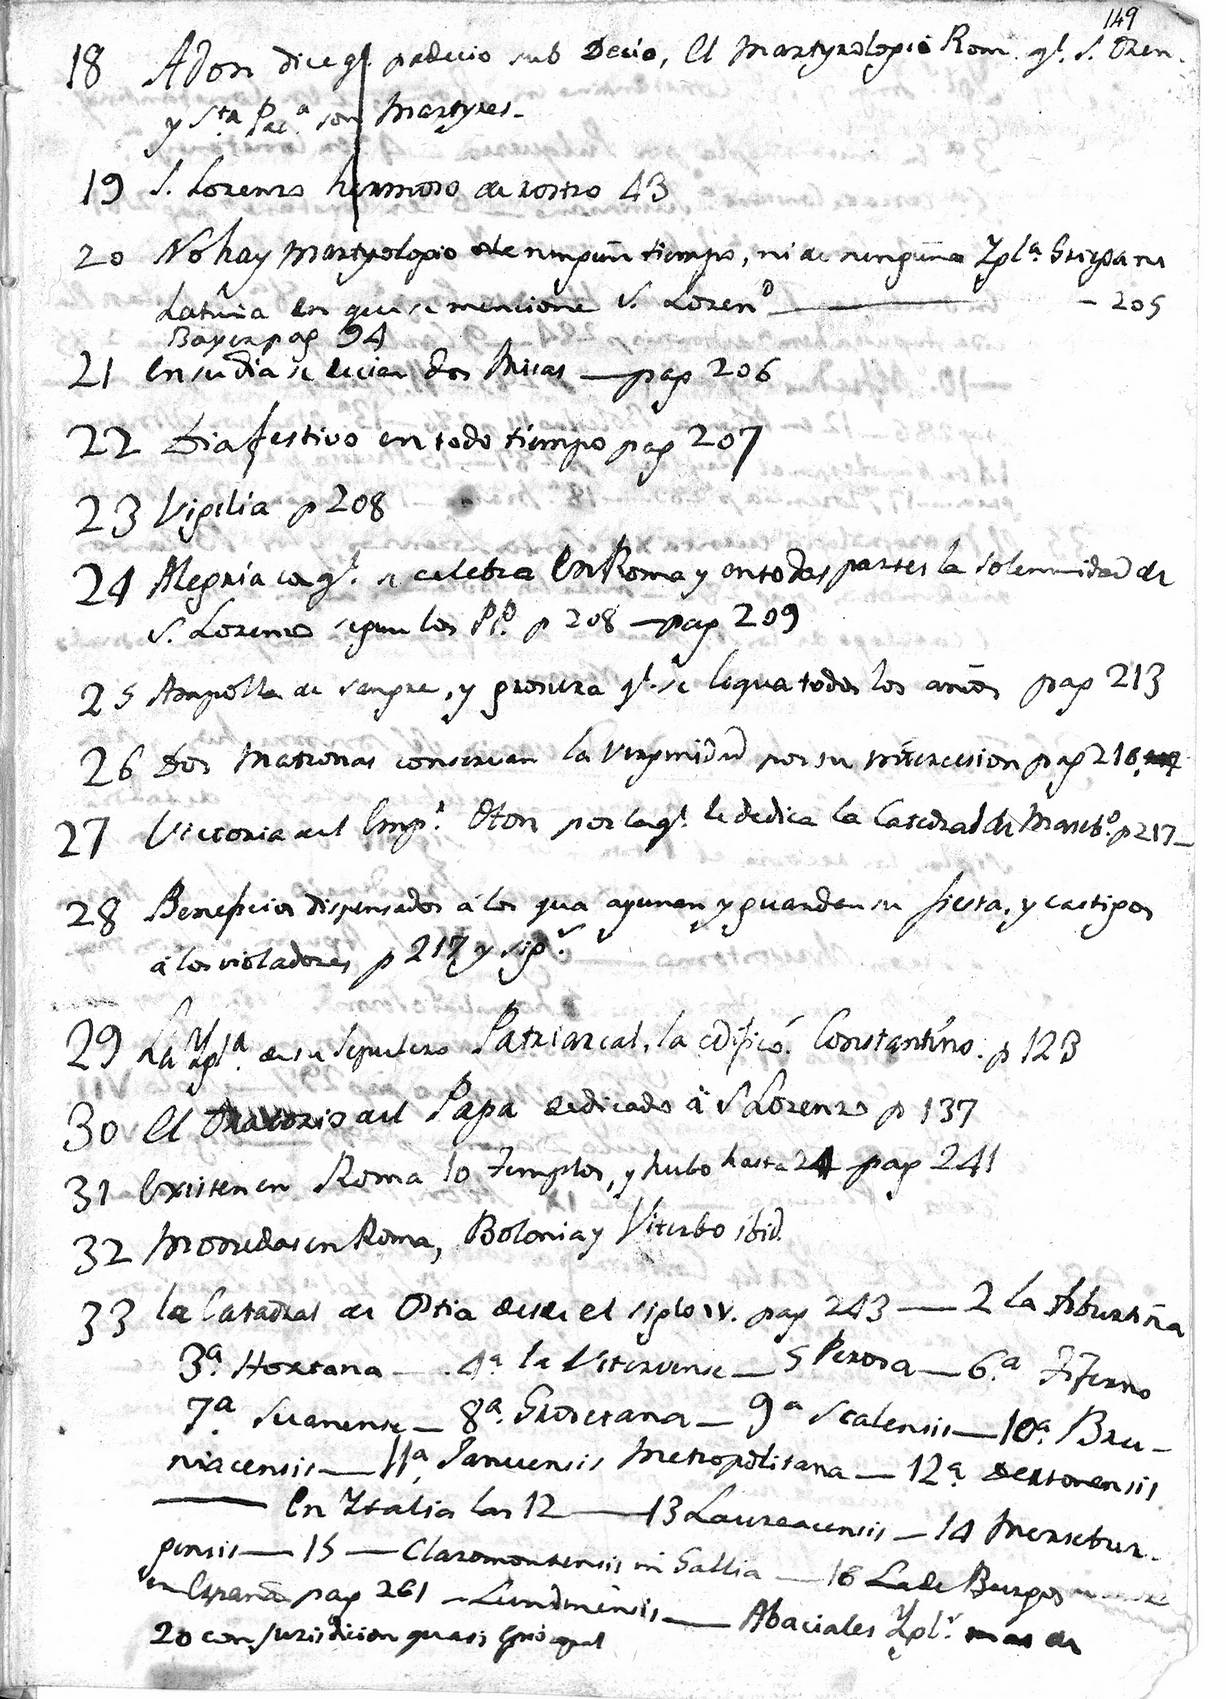 149
18 Adon dice q.^e padecio sub Decio, El Martyrologio Rom. q.^e S. Oren.
y S.ta Pac.a son Martyres.
19 S. Lorenzo hermoso de rostro 43
20 No hay Martyrologio de ningun tiempo, ni de ninguna Ygl.a Griega ni
Latina en que se mencione S. Loren.o — 205
Bayer pag 94
21 En su dia se decian dos Misas — pag 206
22 Dia festivo en todo tiempo pag 207
23 Vigilia p 208
24 Alegria co q.^e se celebra En Roma y en todas partes la solemnidad de
S. Lorenzo segun los PP. p 208 — pag 209
25 Ampolla de sangre, y grosura q.^e se liqua todos los años pag 213
26 Dos Matronas conservan la Virginidad por su intercesion pag 216
27 Victoria del Emp.r Oton por la q.^e le dedica la Catedral de Mersb.o p 217
28 Beneficios dispensados á los que ayunan y guardan su fiesta, y castigos
á los violadores p 217 y sig.s
29 La Ygl.a de su sepulcro Patriarcal, la edificó Constantino. p 123
30 El Oratorio del Papa dedicado à S Lorenzo p 137
31 Existen en Roma 10 Templos, y hubo hasta 24 pag 241
32 Monedas en Roma, Bolonia y Viterbo ibid.
33 la Catadral de Ostia desde el siglo IV. pag 243 — 2 La tiburtina
3.a Hortana — 4.a la Viterviense — 5 Perosa — 6.a Tiferno
7.a Suanense — 8.a Grosetana — 9.a Scalensis — 10.a Bru-
niacensis — 11.a Januensis Metropolitana — 12.a dertonensis
— En Ytalia las 12 — 13 Laureacensis — 14 Mersebur-
gensis — 15 — Claromontensis in Gallia — 16 La de Burgos
en España pag 261 — Lundinensis — Abaciales Ygl.s mas de
20 con jurisdicion quasi Episcopal